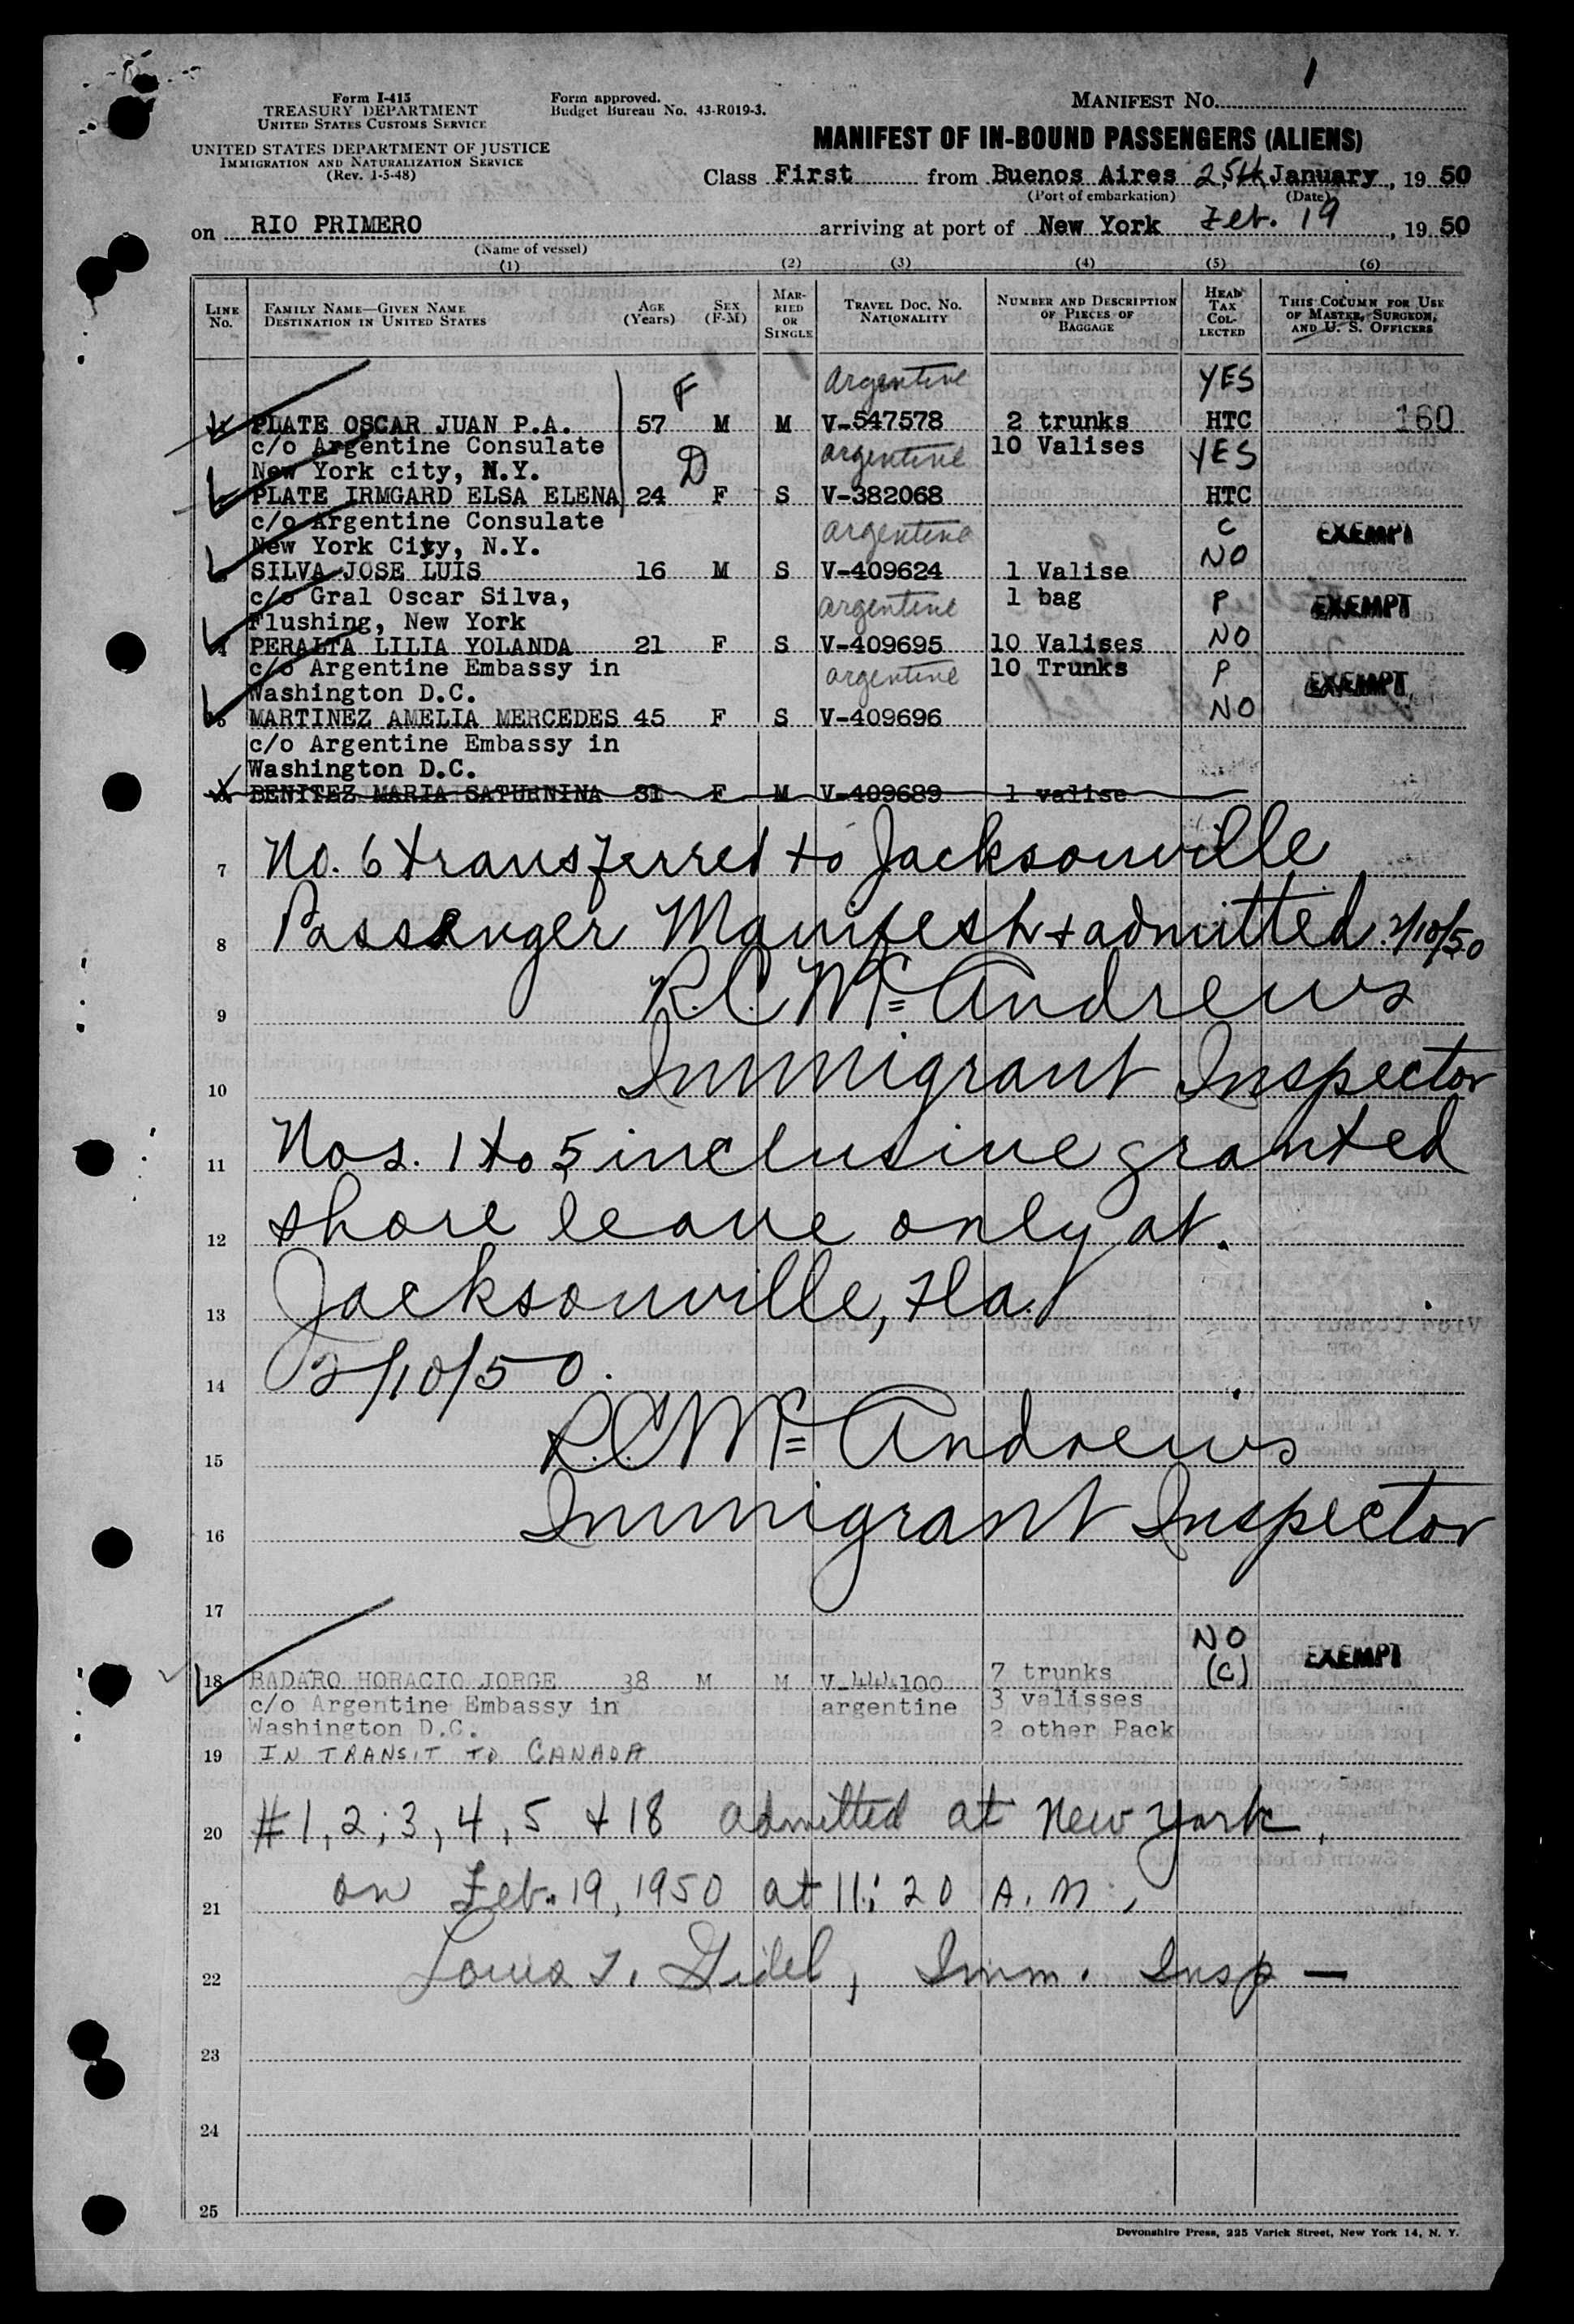 1
Form I-415
TREASURY DEPARTMENT
UNITED STATES CUSTOMS SERVICE
UNITED STATES DEPARTMENT OF JUSTICE
IMMIGRATION AND NATURALIZATION SERVICE
(Rev. 1-5-48)
Form approved.
Budget Bureau No. 43-R019-3.
MANIFEST NO.
MANIFEST OF IN-BOUND PASSENGERS (ALIENS)
Class First from Buenos Aires 25th January, 19 50
(Port of embarkation) (Date)
on RIO PRIMERO arriving at port of New York Feb. 19, 19 50
(Name of vessel)
(1) (2) (3) (4) (5) (6)
LINE No. FAMILY NAME—GIVEN NAME DESTINATION IN UNITED STATES AGE (Years) SEX (F-M) MARRIED OR SINGLE TRAVEL DOC. NO. NATIONALITY NUMBER AND DESCRIPTION OF PIECES OF BAGGAGE HEAD TAX COLLECTED THIS COLUMN FOR USE OF MASTER, SURGEON, AND U. S. OFFICERS
F Argentine YES
PLATE OSCAR JUAN P.A. 57 M M V-547578 2 trunks HTC 160
c/o Argentine Consulate argentine 10 Valises YES
New York city, N.Y. D
PLATE IRMGARD ELSA ELENA 24 F S V-382068 HTC
c/o Argentine Consulate argentine C EXEMPT
New York City, N.Y. NO
SILVA JOSE LUIS 16 M S V-409624 1 Valise
c/o Gral Oscar Silva, argentine 1 bag P EXEMPT
Flushing, New York NO
4 PERALTA LILIA YOLANDA 21 F S V-409695 10 Valises
c/o Argentine Embassy in argentine 10 Trunks P EXEMPT
Washington D.C. NO
5 MARTINEZ AMELIA MERCEDES 45 F S V-409696
c/o Argentine Embassy in
Washington D.C.
BENITEZ MARIA SATURNINA 31 F M V-409689 1 valise
7 No. 6 transferred to Jacksonville
8 Passenger Manifest & admitted. 2/10/50
9 R.C. McAndrews
10 Immigrant Inspector
11 Nos. 1 to 5 inclusive granted
12 shore leave only at.
13 Jacksonville, Fla.
14 2/10/50.
15 R.C. McAndrews
16 Immigrant Inspector
17
NO EXEMPT
18 BADARO HORACIO JORGE 38 M M V-444100 7 trunks (C)
c/o Argentine Embassy in argentine 3 valisses
Washington D.C. 2 other Pack
19 IN TRANSIT TO CANADA
20 #1, 2, 3, 4, 5 & 18 admitted at New York,
21 on Feb. 19, 1950 at 11:20 A.M.,
22 Imm. Insp —
23
24
25
Devonshire Press, 225 Varick Street, New York 14, N. Y.